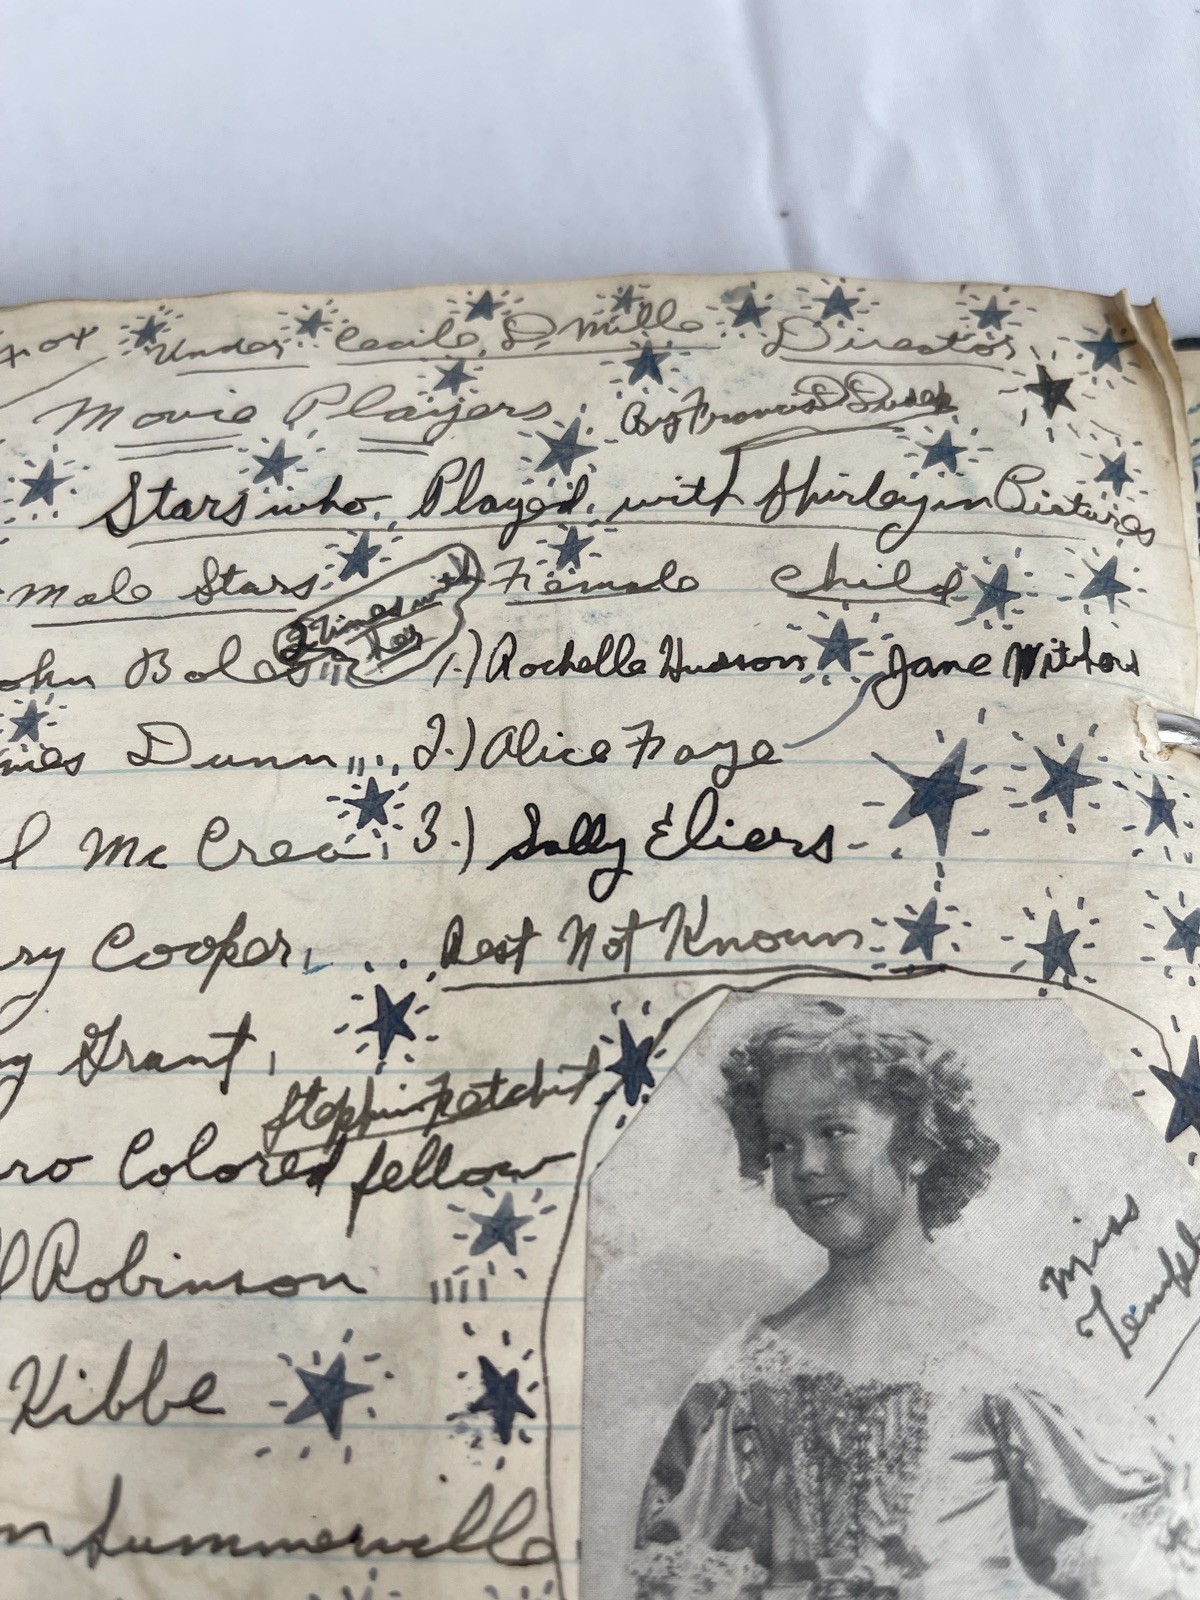 Fox Under Cecile. D. Mille Director
Movie Players. By Francis
Stars who. Played. with Shirley in Pictures
Male Stars. Female Child
2 Times with her
ohn Boles 1.) Rochelle Hudson Jane Withers
mes Dunn 2.) Alice Faye
l Mc Crea 3.) Sally Eliers
ry Cooper, ... Rest Not Known
y Grant,
Steppin Fetchit
ro Colored fellow
l Robinson
Kibbe
m Summerville
Miss
Temple